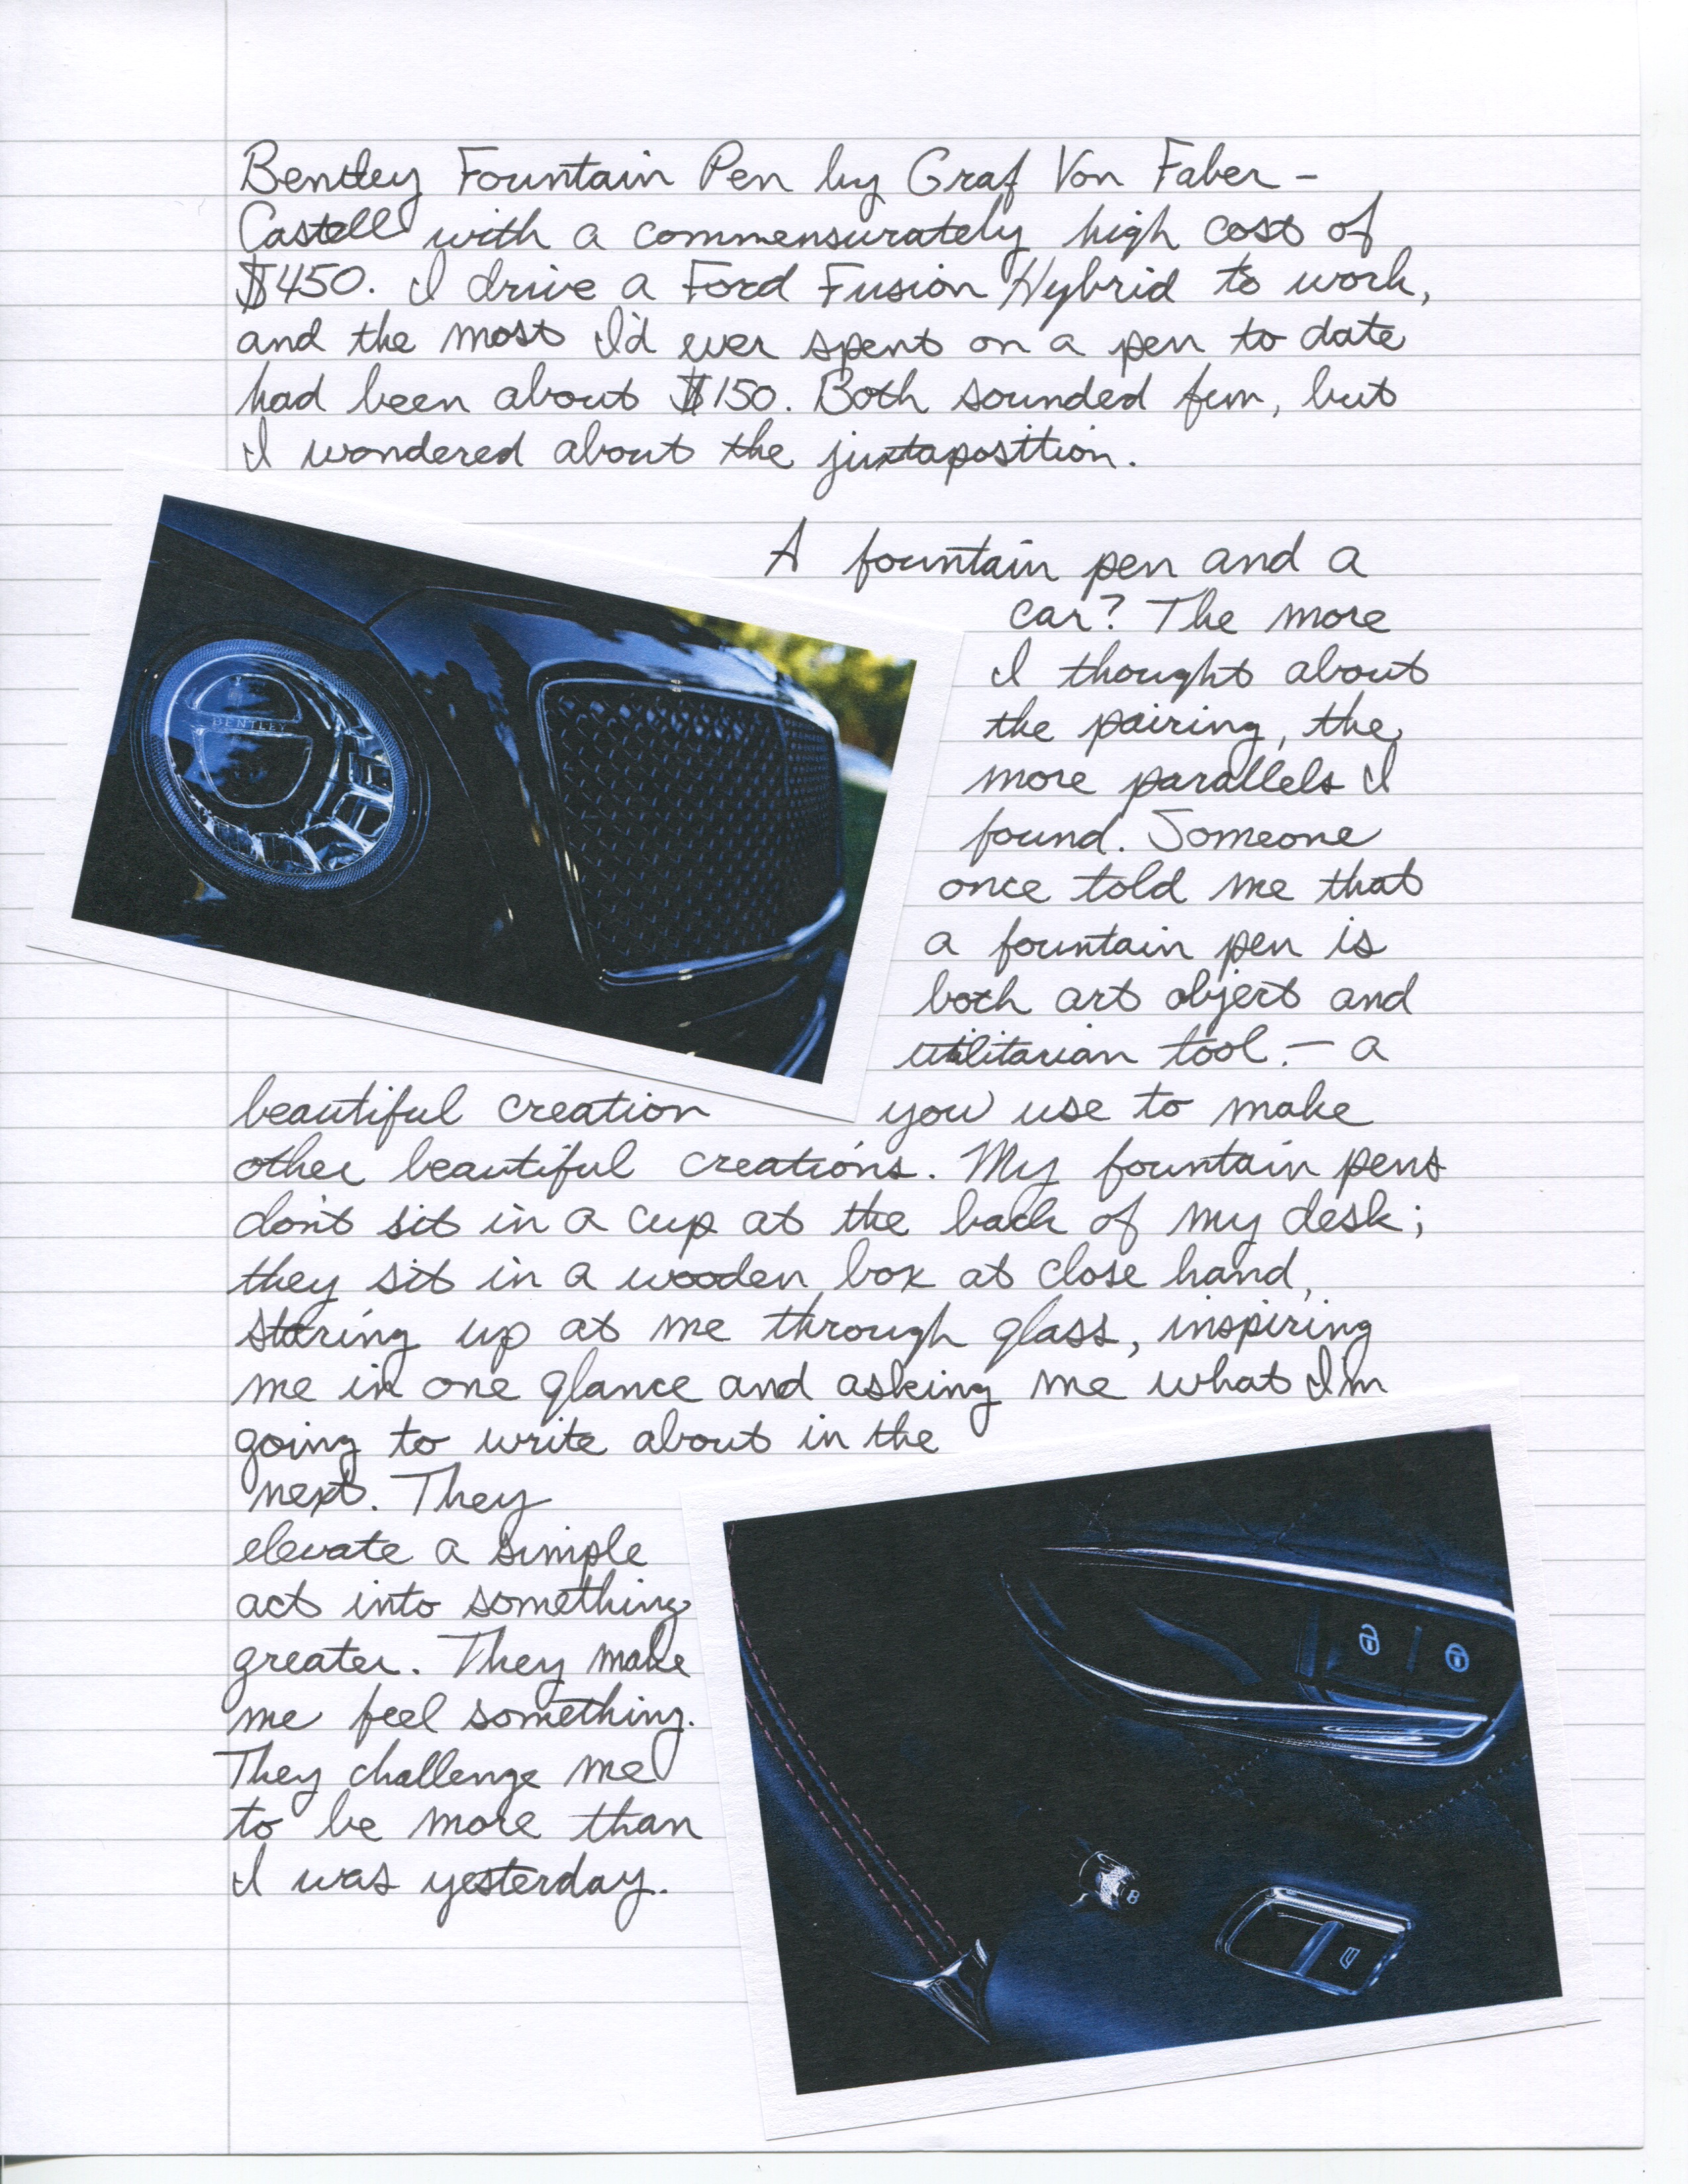 Bentley Fountain Pen by Graf Von Faber-
Castell with a commensurately high cost of
$450. I drive a Ford Fusion Hybrid to work,
and the most I'd ever spent on a pen to date
had been about $150. Both sounded fun, but
I wondered about the juxtaposition.
A fountain pen and a
car? The more
I thought about
the pairing, the
more parallels I
found. Someone
once told me that
a fountain pen is
both art object and
utilitarian tool. — a
beautiful creation you use to make
other beautiful creations. My fountain pens
don't sit in a cup at the back of my desk;
they sit in a wooden box at close hand,
staring up at me through glass, inspiring
me in one glance and asking me what I'm
going to write about in the
next. They
elevate a simple
act into something
greater. They make
me feel something.
They challenge me
to be more than
I was yesterday.
BENTLEY
B